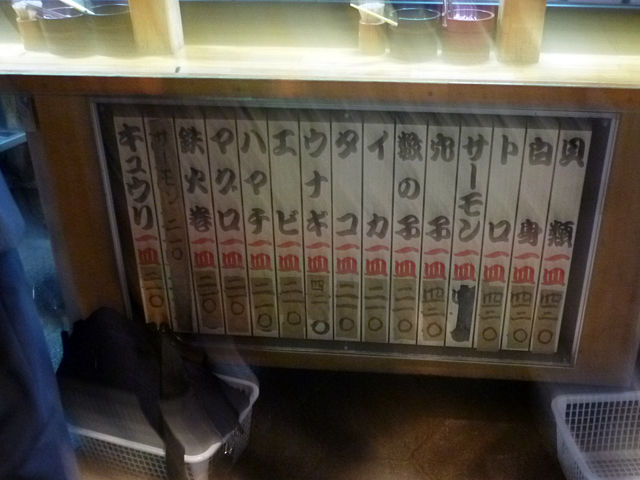 貝類一皿四二〇
白身一皿四二〇
トロ一皿四二〇
サーモン一皿
穴子一皿四二〇
数の子一皿二一〇
イカ一皿二一〇
タコ一皿二一〇
ウナギ一皿四二〇
エビ一皿二一〇
ハマチ一皿二一〇
マグロ一皿二一〇
鉄火巻一皿二一〇
サーモン二一〇
キュウリ一皿二一〇